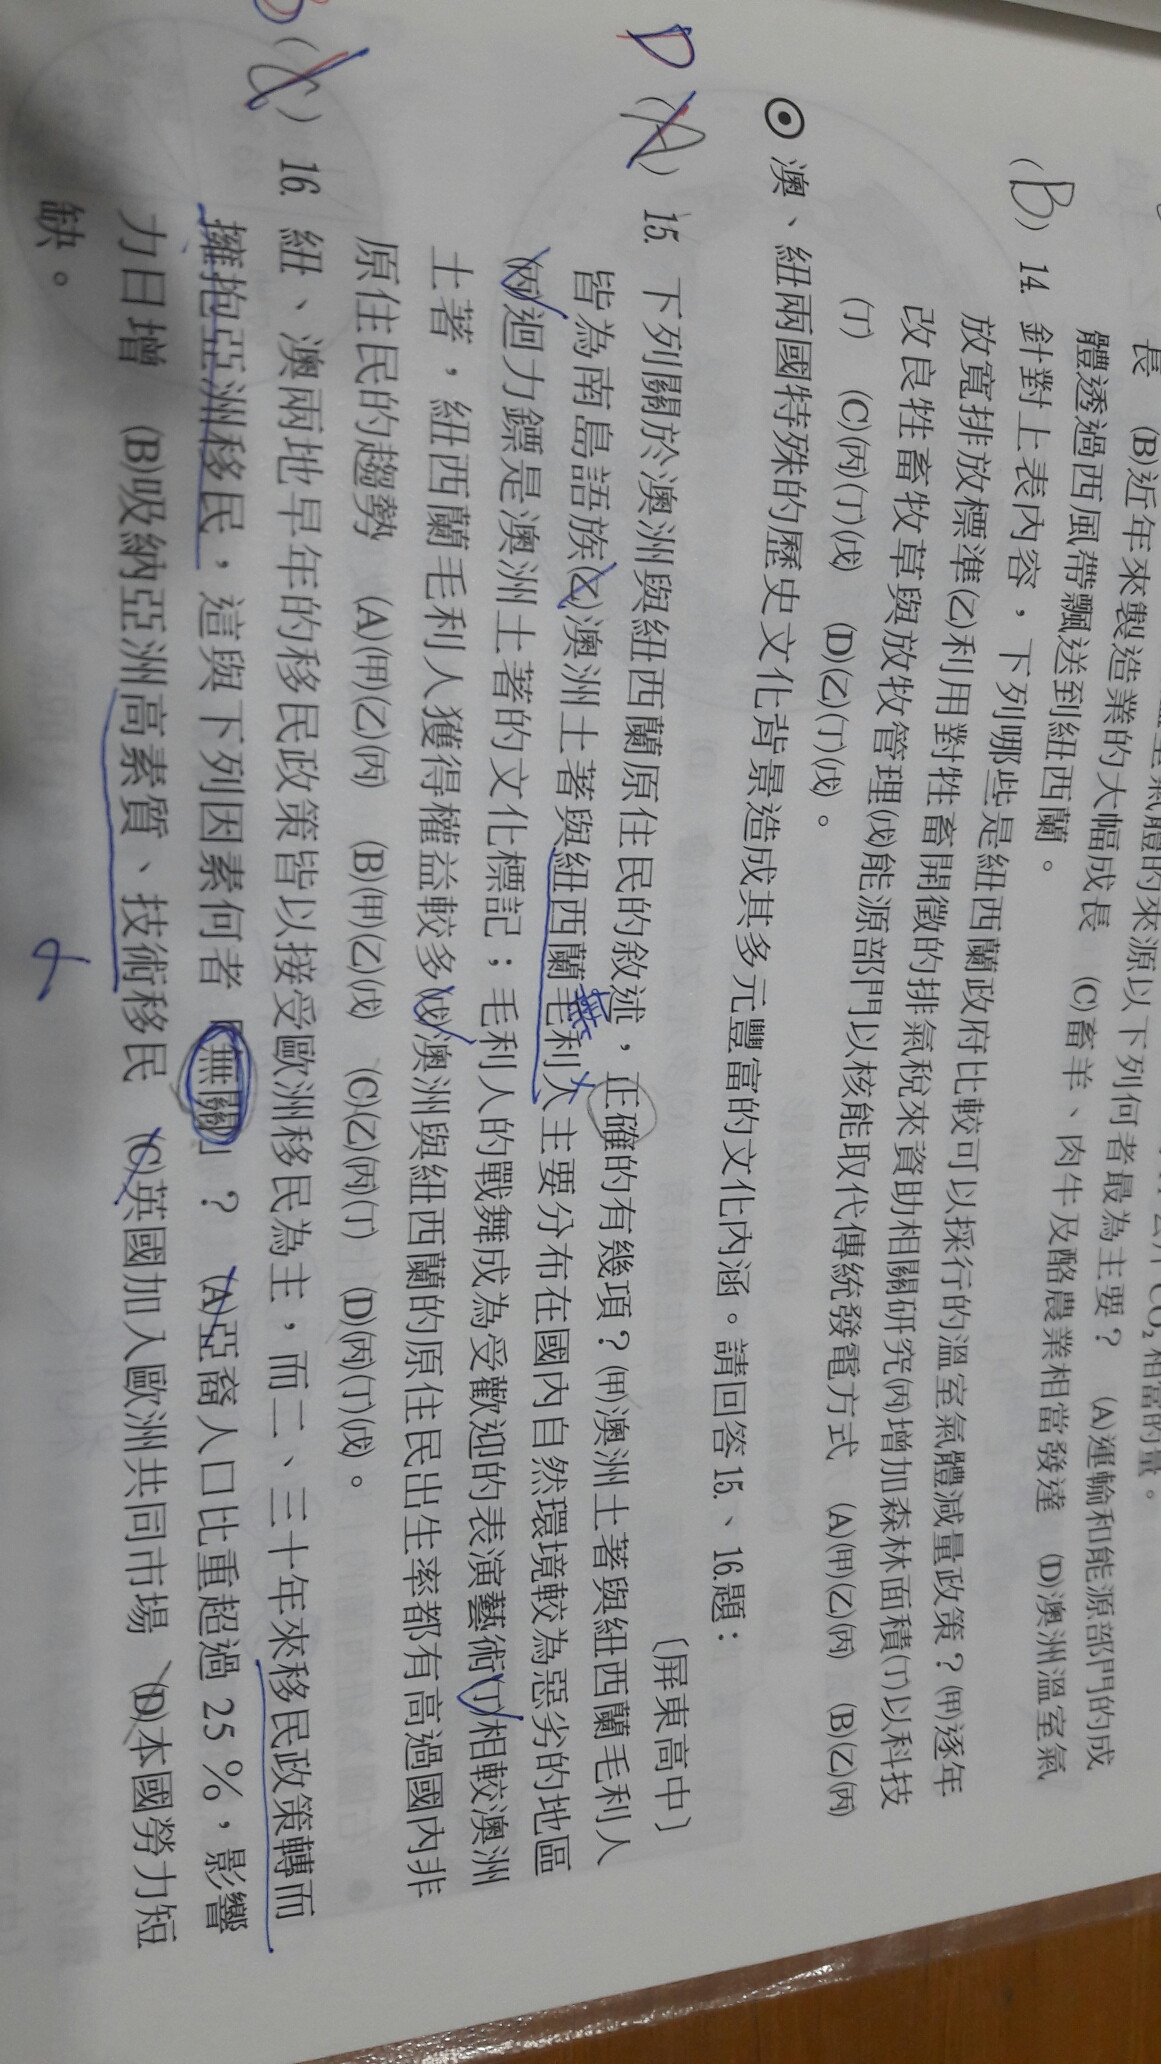 長　(B)近年來製造業的大幅成長　(C)畜羊、肉牛及酪農業相當發達　(D)澳洲溫室氣
體透過西風帶飄送到紐西蘭。
(B) 14. 針對上表內容，下列哪些是紐西蘭政府比較可以採行的溫室氣體減量政策？(甲)逐年
放寬排放標準(乙)利用對牲畜開徵的排氣稅來資助相關研究(丙)增加森林面積(丁)以科技
改良牲畜牧草與放牧管理(戊)能源部門以核能取代傳統發電方式　(A)(甲)(乙)(丙)　(B)(乙)(丙)
(丁)　(C)(丙)(丁)(戊)　(D)(乙)(丁)(戊)。
⊙ 澳、紐兩國特殊的歷史文化背景造成其多元豐富的文化內涵。請回答15.、16.題：
〔屏東高中〕
D (A) 15. 下列關於澳洲與紐西蘭原住民的敘述，正確的有幾項？(甲)澳洲土著與紐西蘭毛利人
無
皆為南島語族(乙)澳洲土著與紐西蘭毛利人主要分布在國內自然環境較為惡劣的地區
(丙)迴力鏢是澳洲土著的文化標記；毛利人的戰舞成為受歡迎的表演藝術(丁)相較澳洲
土著，紐西蘭毛利人獲得權益較多(戊)澳洲與紐西蘭的原住民出生率都有高過國內非
原住民的趨勢　(A)(甲)(乙)(丙)　(B)(甲)(乙)(戊)　(C)(乙)(丙)(丁)　(D)(丙)(丁)(戊)。
16. 紐、澳兩地早年的移民政策皆以接受歐洲移民為主，而二、三十年來移民政策轉而
擁抱亞洲移民，這與下列因素何者「無關」？　(A)亞裔人口比重超過 25 %，影響
力日增　(B)吸納亞洲高素質、技術移民　(C)英國加入歐洲共同市場　(D)本國勞力短
缺。